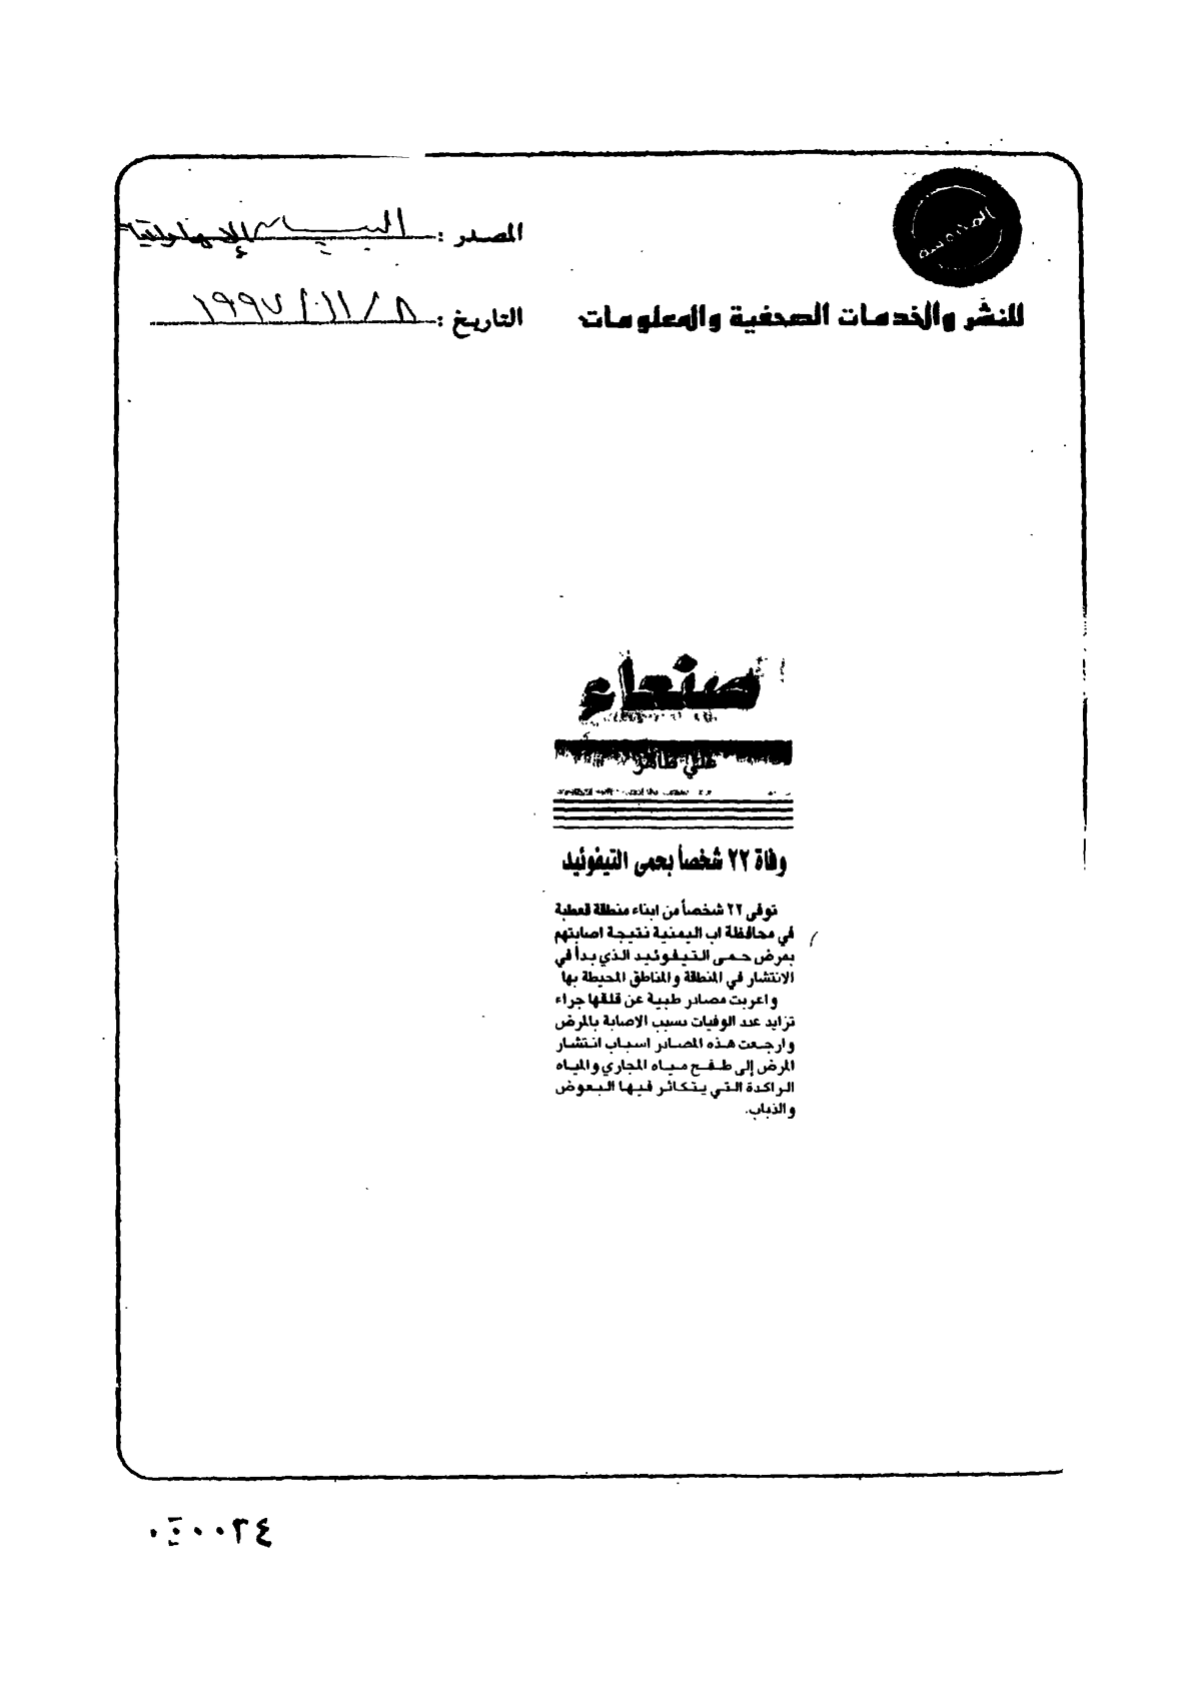 المصدر : البيان الإماراتية
للنشر والخدمات الصحفية والمعلومات
التاريخ : ٨ / ١١ / ١٩٩٧
صنعاء
علي طاهر
وفاة ٢٢ شخصاً بحمى التيفوئيد
توفى ٢٢ شخصاً من ابناء منطقة قعطبة
في محافظة اب اليمنية نتيجة اصابتهم
بمرض حمى التيفوئيد الذي بدأ في
الانتشار في المنطقة والمناطق المحيطة بها
واعربت مصادر طبية عن قلقها جراء
تزايد عدد الوفيات بسبب الاصابة بالمرض
وارجعت هذه المصادر اسباب انتشار
المرض إلى طفح مياه المجاري والمياه
الراكدة التي يتكاثر فيها البعوض
والذباب.